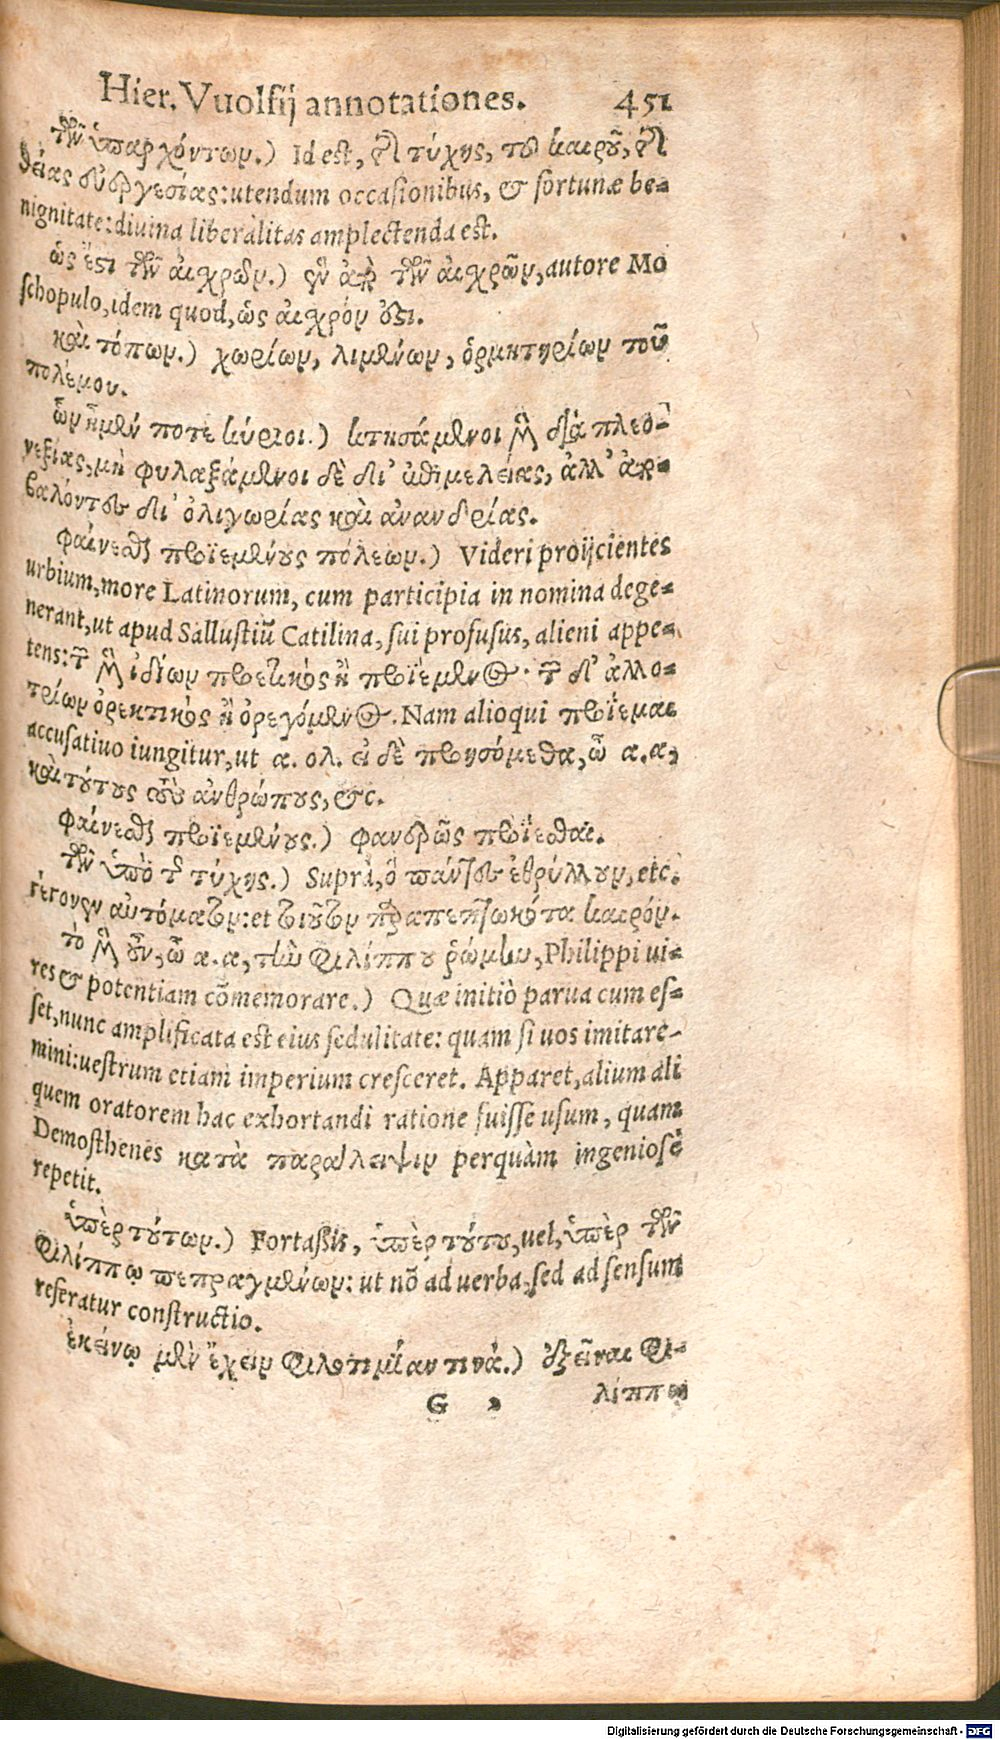 Hier. Vuolfij annotationes. 451
τῶν ὑπαρχόντων.) Id est, τῆς τύχης, τοῦ καιροῦ, τῆς
θείας εὐεργεσίας: utendum occasionibus, & fortunæ be-
nignitate: diuina liberalitas amplectenda est.
ὡς ἔστι τῶν αἰσχρῶν.) ἓν ἀπὸ τῶν αἰσχρῶν, autore Mo
schopulo, idem quod, ὡς αἰσχρόν ἐστι.
καὶ τόπων.) χωρίων, λιμένων, ὁρμητηρίων τοῦ
πολέμου.
ὧν ἦμέν ποτε κύριοι.) κτησάμενοι μὲν διὰ πλεο-
νεξίας, μὴ φυλαξάμενοι δὲ δι' ἐπιμελείας, ἀλλ' ἀπο-
βαλόντες δι' ὀλιγωρίας καὶ ἀνανδρίας.
φαίνεσθαι προϊεμένους πόλεων.) Videri proijcientes
urbium, more Latinorum, cum participia in nomina dege-
nerant, ut apud Sallustiū Catilina, sui profusus, alieni appe-
tens: τῶν μὲν ἰδίων προετικὸς ἢ προϊέμενος· τῶν δ' ἀλλο-
τρίων ὀρεκτικὸς ἢ ὀρεγόμενος. Nam alioqui προΐεμαι
accusatiuo iungitur, ut α. ολ. εἰ δὲ προησόμεθα, ὦ α. α,
καὶ τούτους τοὺς ἀνθρώπους, &c.
φαίνεσθαι προϊεμένους.) φανερῶς προΐεσθαι.
τῶν ὑπὸ τῆς τύχης.) Suprà, ὃ πάντες ἐθρύλλουν, etc.
γέγονεν αὐτόματον: et τοιοῦτον παραπεπτωκότα καιρόν.
τὸ μὲν οὖν, ὦ α. α, τὴν Φιλίππου ῥώμην, Philippi ui-
res & potentiam cōmemorare.) Quæ initiò parua cum es-
set, nunc amplificata est eius sedulitate: quam si uos imitare-
mini: uestrum etiam imperium cresceret. Apparet, alium ali
quem oratorem hac exhortandi ratione fuisse usum, quam
Demosthenes κατὰ παράλειψιν perquàm ingeniosè
repetit.
ὑπὲρ τούτων.) Fortassis, ὑπὲρ τούτου, uel, ὑπὲρ τῶν
Φιλίππῳ πεπραγμένων: ut nō ad uerba, sed ad sensum
referatur constructio.
ἐκείνῳ μὲν ἔχειν φιλοτιμίαν τινά.) ἐξεῖναι Φι-
G 2 λίππῳ
Digitalisierung gefördert durch die Deutsche Forschungsgemeinschaft - DFG